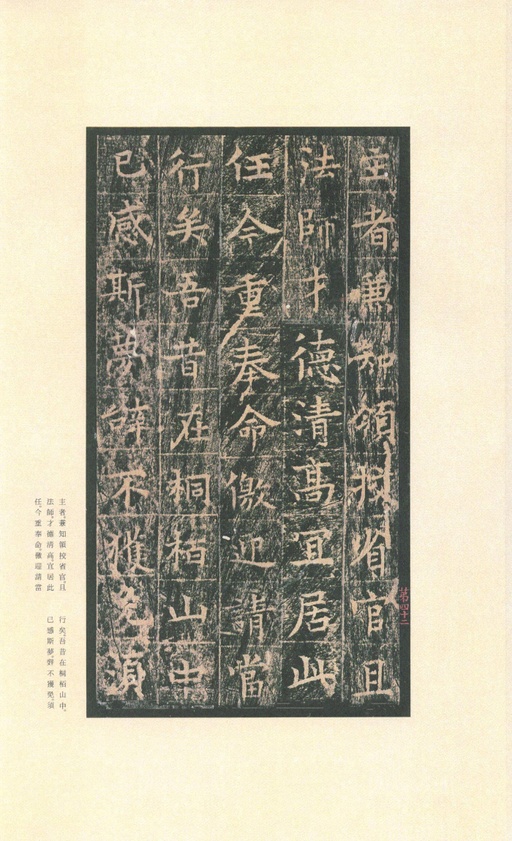 主者兼知領校省官且
法師才德清高冝居此
任今重奉命儌迎請當
行矣吾昔在桐栢山中
已感斯夢辝不獲免須
主者，兼知領校省官，且
法師，才德清高，宜居此
任，今重奉命，儌迎請當
行矣，吾昔在桐栢山中，
已感斯夢，辝不獲免，須